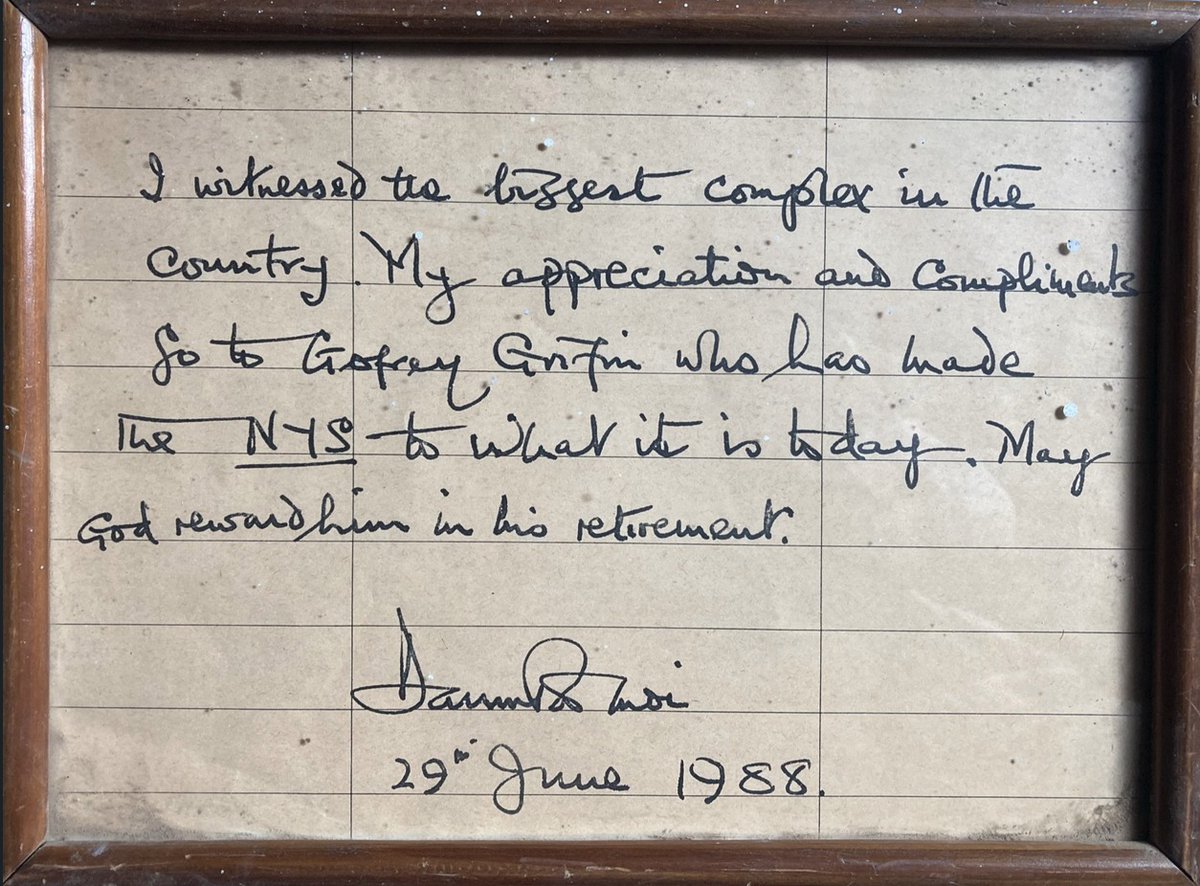 I witnessed the biggest complex in the
Country. My appreciation and Compliments
Go to Gofrey Grifin who has made
The NYS to what it is today. May
God reward him in his retirement.
Daniel T. arap Moi
29th June 1988.